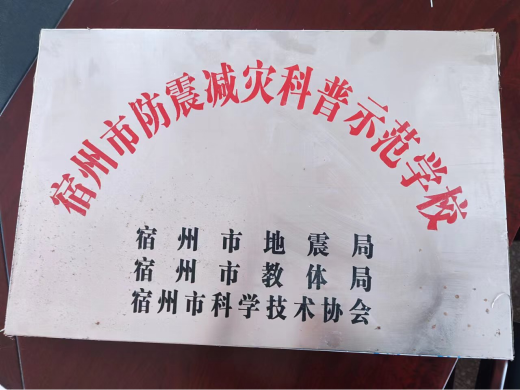 宿州市防震减灾科普示范学校
宿州市地震局
宿州市教体局
宿州市科学技术协会